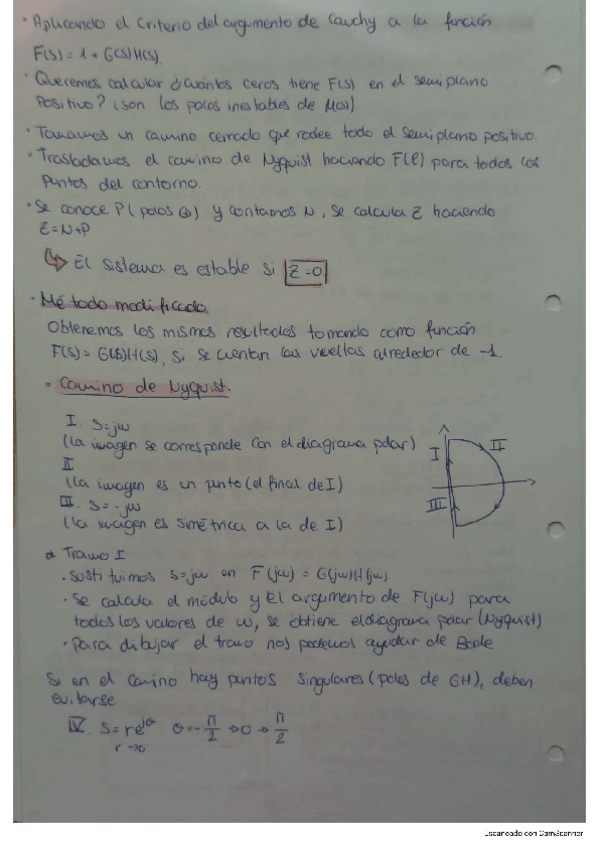 · Aplicando el criterio del argumento de Cauchy a la función
F(s) = 1 + G(s)H(s).
· Queremos calcular ¿cuántos ceros tiene F(s) en el semiplano
positivo? (son los polos inestables de M(s))
· Tomamos un camino cerrado que rodee todo el semiplano positivo
· Trasladamos el camino de Nyquist haciendo F(P) para todos los
puntos del contorno.
· Se conoce P (polos ⊕) y contamos N, se calcula Z haciendo
Z=N+P
↳ El sistema es estable si Z=0
· Método modificado.
Obtenemos los mismos resultados tomando como función
F(s) = G(s)H(s), si se cuentan las vueltas alrededor de -1.
· Camino de Nyquist.
I. s=jω
(la imagen se corresponde con el diagrama polar)
II
(la imagen es un punto (el final de I)
III. s=-jω
(la imagen es simétrica a la de I)
I
II
III
Tramo I
· Sustituimos s=jω en F(jω) = G(jω)H(jω)
· Se calcula el módulo y el argumento de F(jω) para
todos los valores de ω, se obtiene el diagrama polar (Nyquist)
· Para dibujar el trazo nos podemos ayudar de Bode
Si en el camino hay puntos singulares (polos de GH), deben
evitarse
IV. s = re^jθ θ = -π/2 → 0 → π/2
r→0
Escaneado con CamScanner